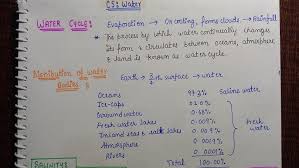 C5: Water
WATER CYCLE: Evaporation → On cooling, forms clouds → Rainfall
* The process by which water continually changes
its form & circulates between oceans, atmosphere
& land is known as water cycle.
Distribution of water
Bodies: Earth → 3/4 surface → water
Oceans 97.3% Saline water
Ice-caps 02.0%
Groundwater 0.68%
Fresh water lakes 0.009% Fresh
Inland seas & salt lakes 0.009% water
Atmosphere 0.0019%
Rivers 0.0001%
Total 100.00%
SALINITY: